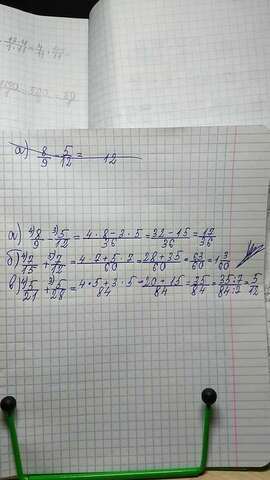 а) 8/9 - 5/12 = 12
а) ⁴⁾8/9 - ³⁾5/12 = 4·8-3·5/36 = 32-15/36 = 17/36
б) ⁴⁾7/15 + ⁵⁾7/12 = 4·7+5·7/60 = 28+35/60 = 63/60 = 1 3/60
в) ⁴⁾5/21 + ³⁾5/28 = 4·5+3·5/84 = 20+15/84 = 35/84 = 35:7/84:7 = 5/12